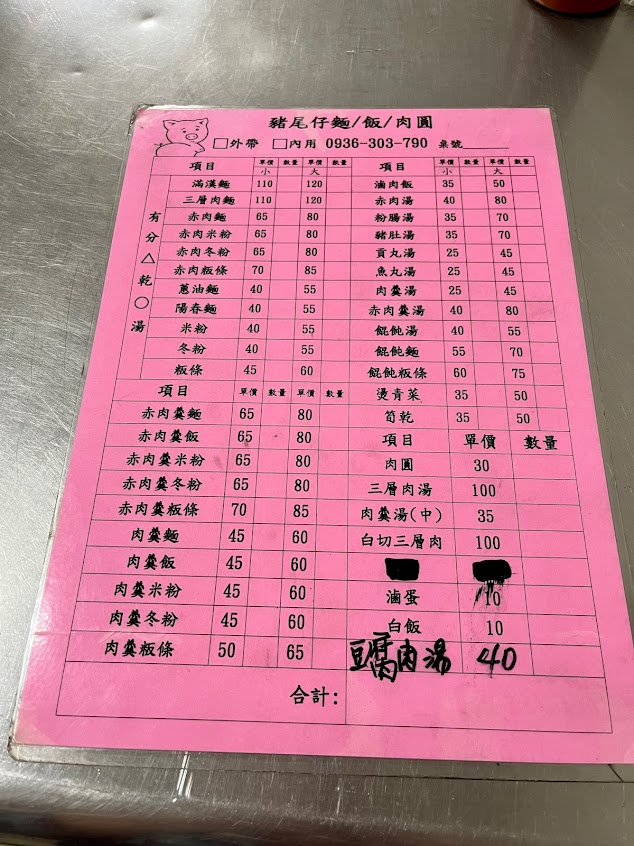 豬尾仔麵/飯/肉圓
□外帶 □內用 0936-303-790 桌號
項目 單價 數量 單價 數量
小 大
有分△乾○湯
滿漢麵 110 120
三層肉麵 110 120
赤肉麵 65 80
赤肉米粉 65 80
赤肉冬粉 65 80
赤肉粄條 70 85
蔥油麵 40 55
陽春麵 40 55
米粉 40 55
冬粉 40 55
粄條 45 60
項目 單價 數量 單價 數量
赤肉羹麵 65 80
赤肉羹飯 65 80
赤肉羹米粉 65 80
赤肉羹冬粉 65 80
赤肉羹粄條 70 85
肉羹麵 45 60
肉羹飯 45 60
肉羹米粉 45 60
肉羹冬粉 45 60
肉羹粄條 50 65
項目 單價 數量 單價 數量
小 大
滷肉飯 35 50
赤肉湯 40 80
粉腸湯 35 70
豬肚湯 35 70
貢丸湯 25 45
魚丸湯 25 45
肉羹湯 25 45
赤肉羹湯 40 80
餛飩湯 40 55
餛飩麵 55 70
餛飩粄條 60 75
燙青菜 35 50
筍乾 35 50
項目 單價 數量
肉圓 30
三層肉湯 100
肉羹湯(中) 35
白切三層肉 100
滷蛋 10
白飯 10
豆腐肉湯 40
合計: